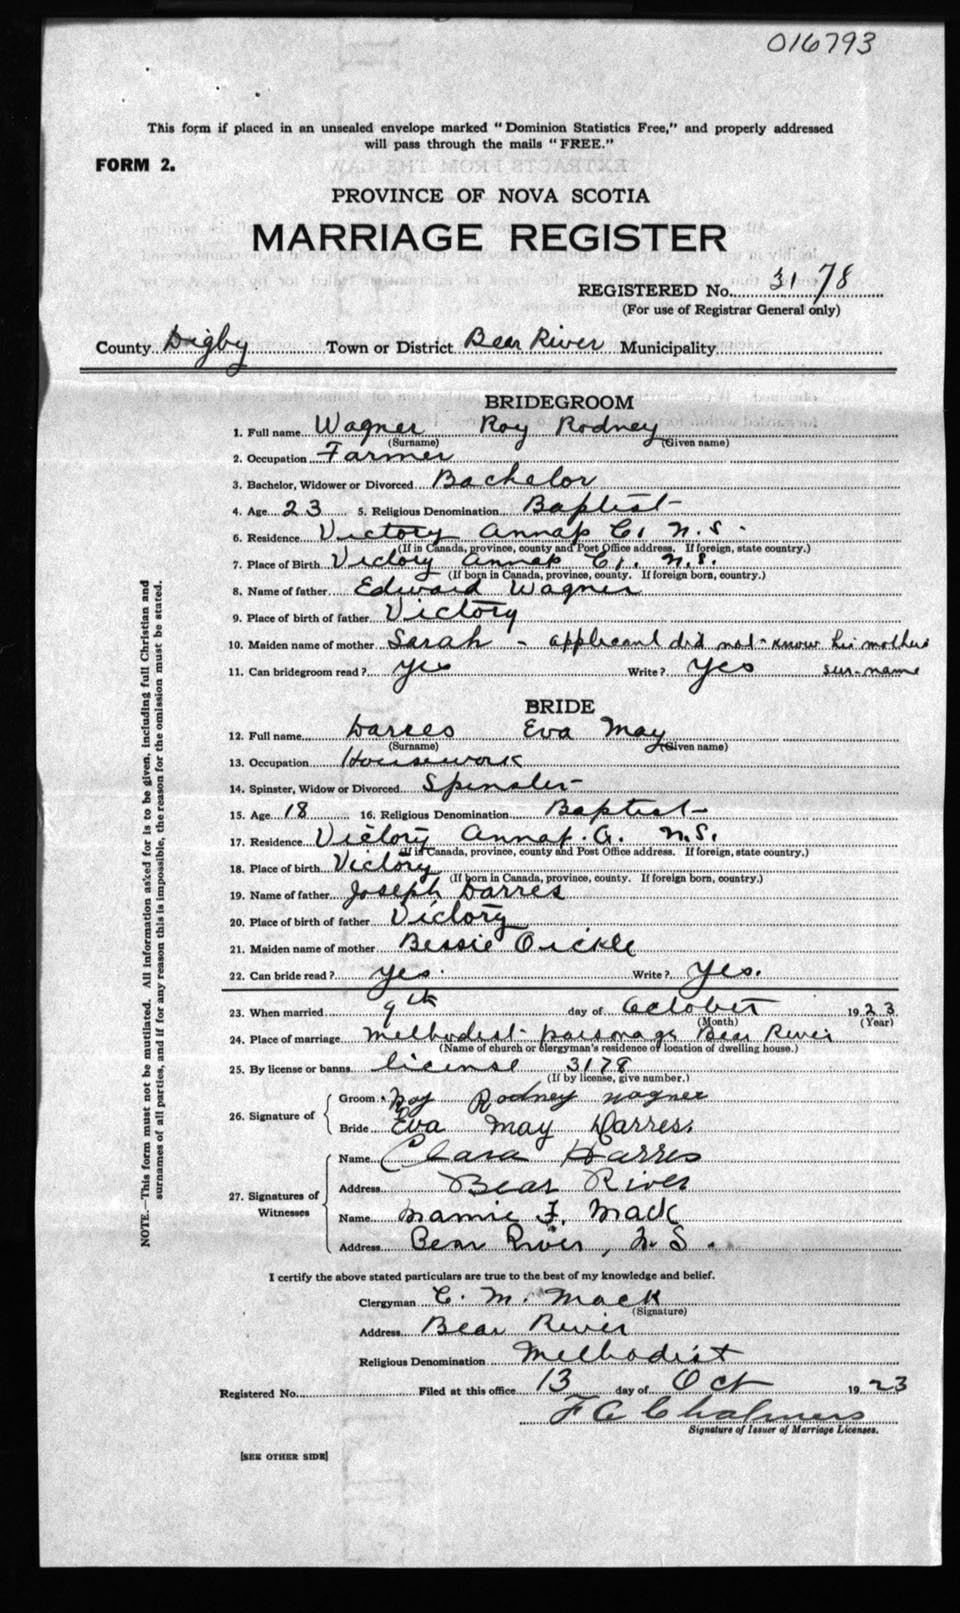 016793
This form if placed in an unsealed envelope marked "Dominion Statistics Free," and properly addressed
will pass through the mails "FREE."
FORM 2.
PROVINCE OF NOVA SCOTIA
MARRIAGE REGISTER
REGISTERED No. 3178
(For use of Registrar General only)
County Digby Town or District Bear River Municipality
BRIDEGROOM
1. Full name Wagner Roy Rodney
(Surname) (Given name)
2. Occupation Farmer
3. Bachelor, Widower or Divorced Bachelor
4. Age 23 5. Religious Denomination Baptist
6. Residence Victory Annap Co. N.S.
(If in Canada, province, county and Post Office address. If foreign, state country.)
7. Place of Birth Victory Annap Co. N.S.
(If born in Canada, province, county. If foreign born, country.)
8. Name of father Edward Wagner
9. Place of birth of father Victory
10. Maiden name of mother Sarah - applicant did not know his mothers
11. Can bridegroom read? yes Write? yes sur-name
BRIDE
12. Full name Darres Eva May
(Surname) (Given name)
13. Occupation Housework
14. Spinster, Widow or Divorced Spinster
15. Age 18 16. Religious Denomination Baptist
17. Residence Victory Annap. Co. N.S.
(If in Canada, province, county and Post Office address. If foreign, state country.)
18. Place of birth Victory
(If born in Canada, province, county. If foreign born, country.)
19. Name of father Joseph Darres
20. Place of birth of father Victory
21. Maiden name of mother Bessie Oickle
22. Can bride read? yes. Write? yes.
23. When married 9th day of October 1923
(Month) (Year)
24. Place of marriage Methodist parsonage Bear River
(Name of church or clergyman's residence or location of dwelling house.)
25. By license or banns license 3178
(If by license, give number.)
26. Signature of
Groom Roy Rodney Wagner
Bride Eva May Darress
27. Signatures of Witnesses
Name Clara Harris
Address Bear River
Name Mamie F. Mack
Address Bear River, N.S.
I certify the above stated particulars are true to the best of my knowledge and belief.
Clergyman C. M. Mack
(Signature)
Address Bear River
Religious Denomination Methodist
Registered No. Filed at this office 13 day of Oct 1923
F C Chalmers
Signature of Issuer of Marriage Licenses.
[SEE OTHER SIDE]
NOTE.—This form must not be mutilated. All information asked for is to be given, including full Christian and
surnames of all parties, and if for any reason this is impossible, the reason for the omission must be stated.